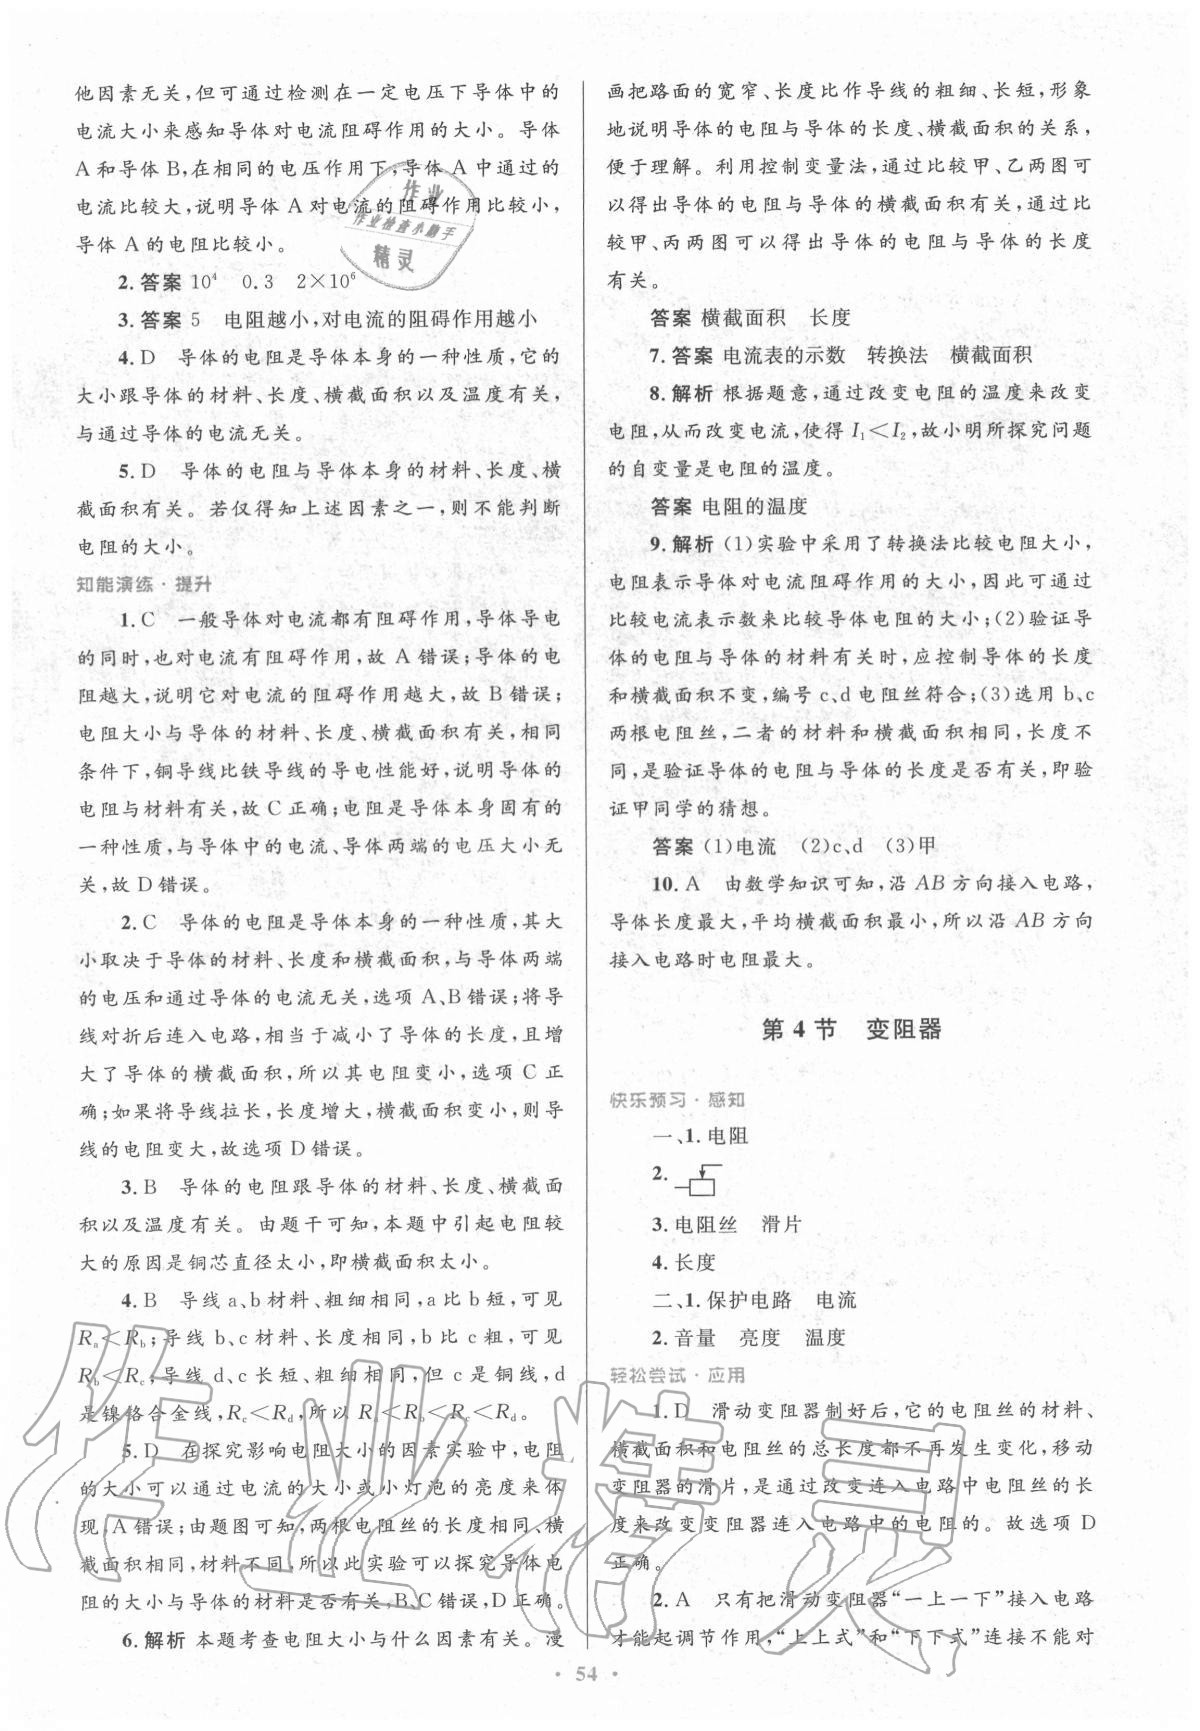 他因素无关,但可通过检测在一定电压下导体中的
电流大小来感知导体对电流阻碍作用的大小。导体
A和导体B,在相同的电压作用下,导体A中通过的
电流比较大,说明导体A对电流的阻碍作用比较小,
导体A的电阻比较小。
2.答案 10⁴ 0.3 2×10⁶
3.答案 5 电阻越小,对电流的阻碍作用越小
4.D 导体的电阻是导体本身的一种性质,它的
大小跟导体的材料、长度、横截面积以及温度有关,
与通过导体的电流无关。
5.D 导体的电阻与导体本身的材料、长度、横
截面积有关。若仅得知上述因素之一,则不能判断
电阻的大小。
知能演练·提升
1.C 一般导体对电流都有阻碍作用,导体导电
的同时,也对电流有阻碍作用,故A错误;导体的电
阻越大,说明它对电流的阻碍作用越大,故B错误;
电阻大小与导体的材料、长度、横截面积有关,相同
条件下,铜导线比铁导线的导电性能好,说明导体的
电阻与材料有关,故C正确;电阻是导体本身固有的
一种性质,与导体中的电流、导体两端的电压大小无
关,故D错误。
2.C 导体的电阻是导体本身的一种性质,其大
小取决于导体的材料、长度和横截面积,与导体两端
的电压和通过导体的电流无关,选项A、B错误;将导
线对折后连入电路,相当于减小了导体的长度,且增
大了导体的横截面积,所以其电阻变小,选项C正
确;如果将导线拉长,长度增大,横截面积变小,则导
线的电阻变大,故选项D错误。
3.B 导体的电阻跟导体的材料、长度、横截面
积以及温度有关。由题干可知,本题中引起电阻较
大的原因是铜芯直径太小,即横截面积太小。
4.B 导线a、b材料、粗细相同,a比b短,可见
Rₐ<R_b;导线b、c材料、长度相同,b比c粗,可见
R_b<R_c;导线d、c长短、粗细相同,但c是铜线,d
是镍铬合金线,R_c<R_d,所以Rₐ<R_b<R_c<R_d。
5.D 在探究影响电阻大小的因素实验中,电阻
的大小可以通过电流的大小或小灯泡的亮度来体
现,A错误;由题图可知,两根电阻丝的长度相同、横
截面积相同,材料不同,所以此实验可以探究导体电
阻的大小与导体的材料是否有关,B、C错误,D正确。
6.解析 本题考查电阻大小与什么因素有关。漫
画把路面的宽窄、长度比作导线的粗细、长短,形象
地说明导体的电阻与导体的长度、横截面积的关系,
便于理解。利用控制变量法,通过比较甲、乙两图可
以得出导体的电阻与导体的横截面积有关,通过比
较甲、丙两图可以得出导体的电阻与导体的长度
有关。
答案 横截面积 长度
7.答案 电流表的示数 转换法 横截面积
8.解析 根据题意,通过改变电阻的温度来改变
电阻,从而改变电流,使得I₁<I₂,故小明所探究问题
的自变量是电阻的温度。
答案 电阻的温度
9.解析 (1)实验中采用了转换法比较电阻大小,
电阻表示导体对电流阻碍作用的大小,因此可通过
比较电流表示数来比较导体电阻的大小;(2)验证导
体的电阻与导体的材料有关时,应控制导体的长度
和横截面积不变,编号c、d电阻丝符合;(3)选用b、c
两根电阻丝,二者的材料和横截面积相同,长度不
同,是验证导体的电阻与导体的长度是否有关,即验
证甲同学的猜想。
答案 (1)电流 (2)c、d (3)甲
10.A 由数学知识可知,沿AB方向接入电路,
导体长度最大,平均横截面积最小,所以沿AB方向
接入电路时电阻最大。
第4节 变阻器
快乐预习·感知
一、1.电阻
2.
3.电阻丝 滑片
4.长度
二、1.保护电路 电流
2.音量 亮度 温度
轻松尝试·应用
1.D 滑动变阻器制好后,它的电阻丝的材料、
横截面积和电阻丝的总长度都不再发生变化,移动
变阻器的滑片,是通过改变连入电路中电阻丝的长
度来改变变阻器连入电路中的电阻的。故选项D
正确。
2.A 只有把滑动变阻器“一上一下”接入电路
才能起调节作用,“上上式”和“下下式”连接不能对
·54·
作业
作业检查小助手
精灵
作业精灵